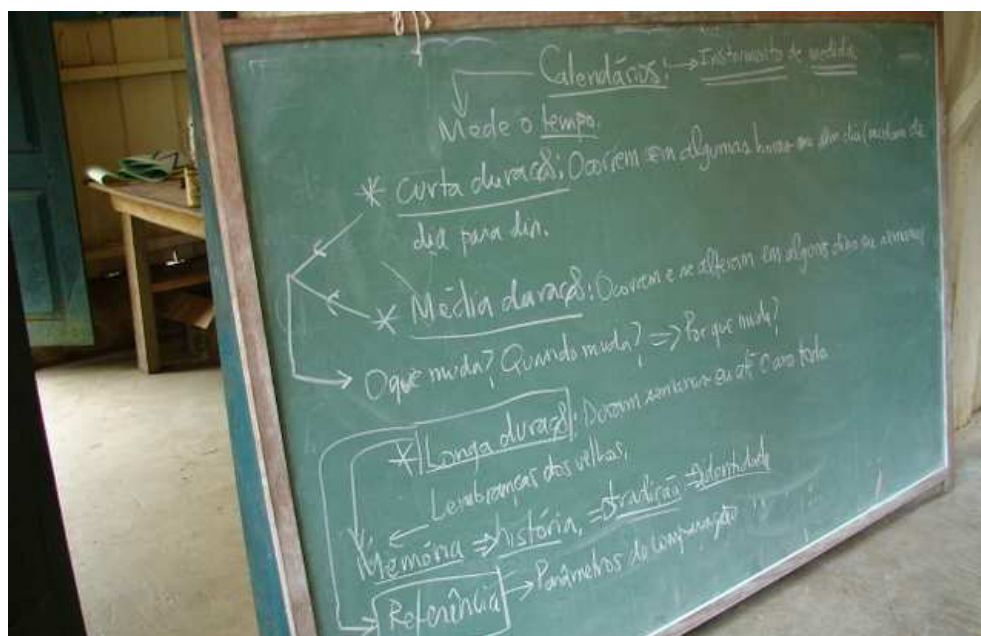 Calendários: → Instrumento de medida
Mede o tempo.
* Curta duração: Ocorrem em algumas horas ou um dia (mudam de
dia para dia.
* Média duração: Ocorrem e se alteram em alguns dias ou
O que muda? Quando muda? => Por que muda?
* Longa duração: Duram semanas ou até o ano todo
Lembranças dos velhos,
Memória => história, => tradição => Identidade
Referência → Parâmetros de comparação